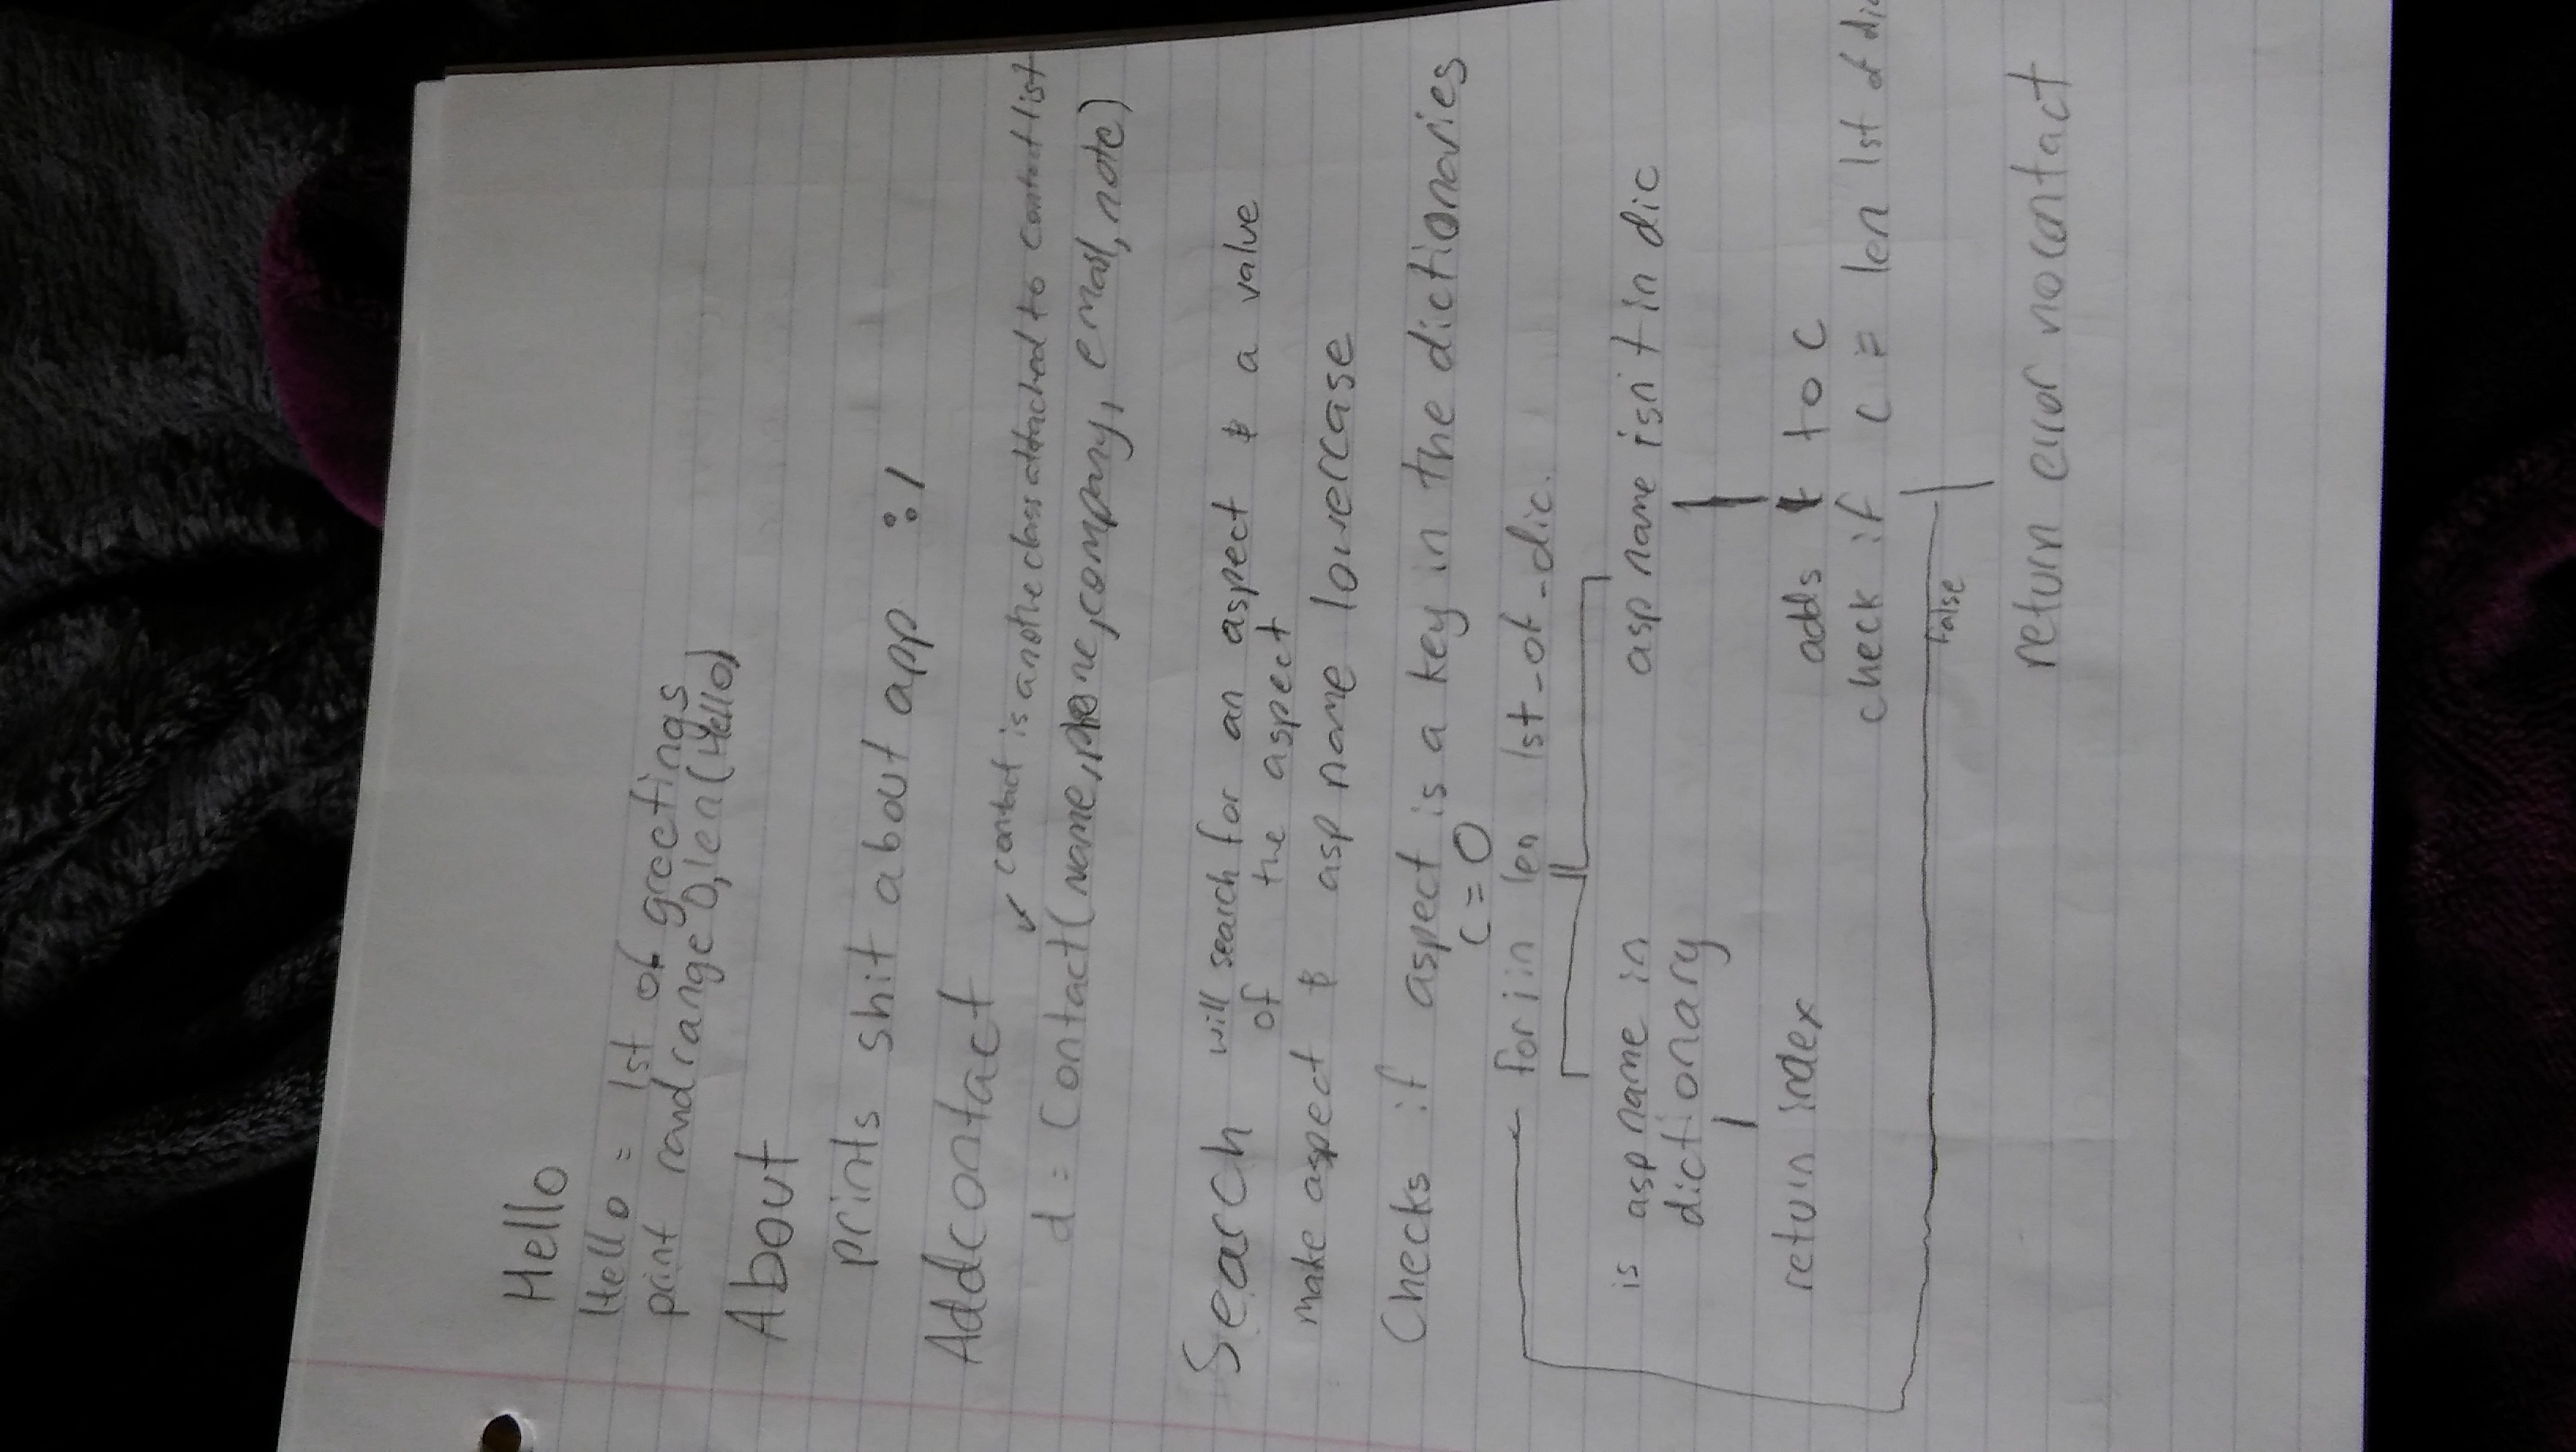 Hello
Hello = lst of greetings
print randrange 0,len(Hello)
About
prints shit about app :/
Addcontact
contact is anothe class attached to contact list
d = Contact(name, phone, company, email, note)
Search will search for an aspect & a value
of the aspect
make aspect & asp name lowercase
Checks if aspect is a key in the dictionaries
c=0
for i in len lst_of_dic.
is asp name in asp name isn't in dic
dictionary
return index adds 1 to c
check if c = len lst of dic
false
return error no contact